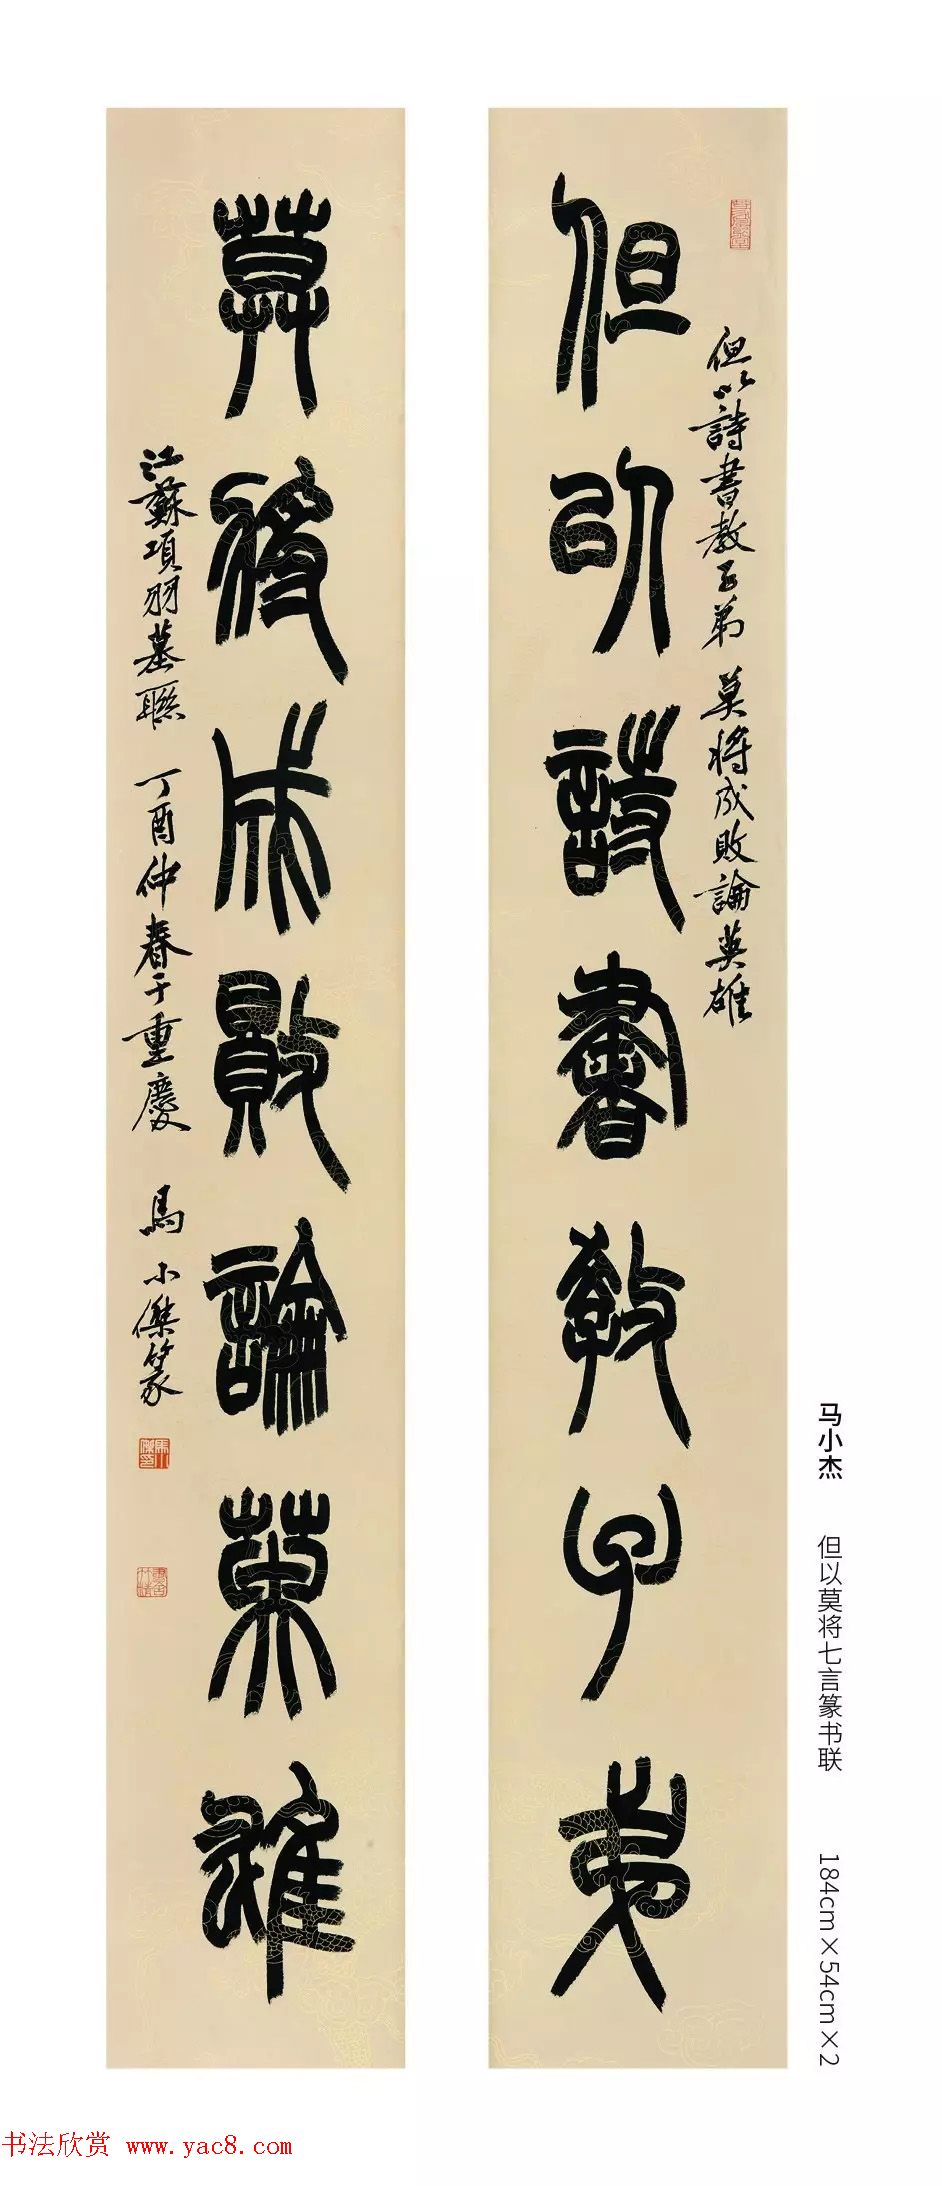 但以詩書教子弟
但以詩書教子弟 莫將成敗論英雄
莫將成敗論英雄
江蘇項羽墓聯 丁酉仲春于重慶 馬小傑篆
马小杰 但以莫将七言篆书联 184cm×54cm×2
书法欣赏 www.yac8.com